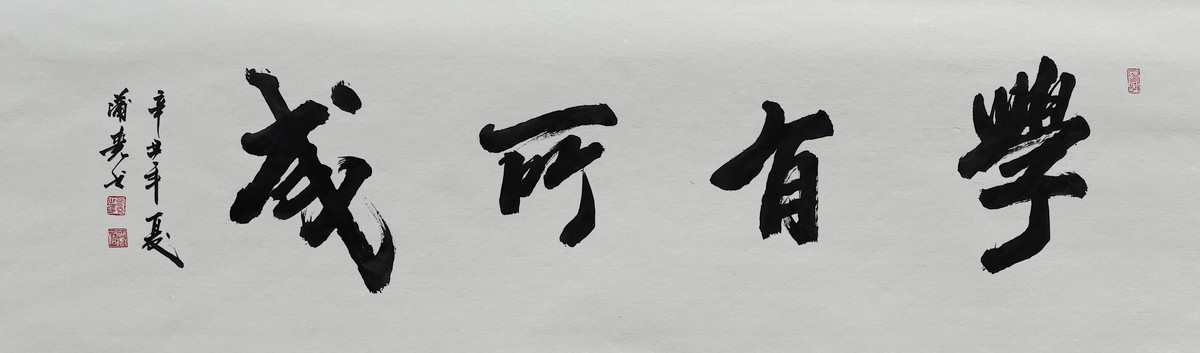 學有所成
辛丑年夏
蒲堯书